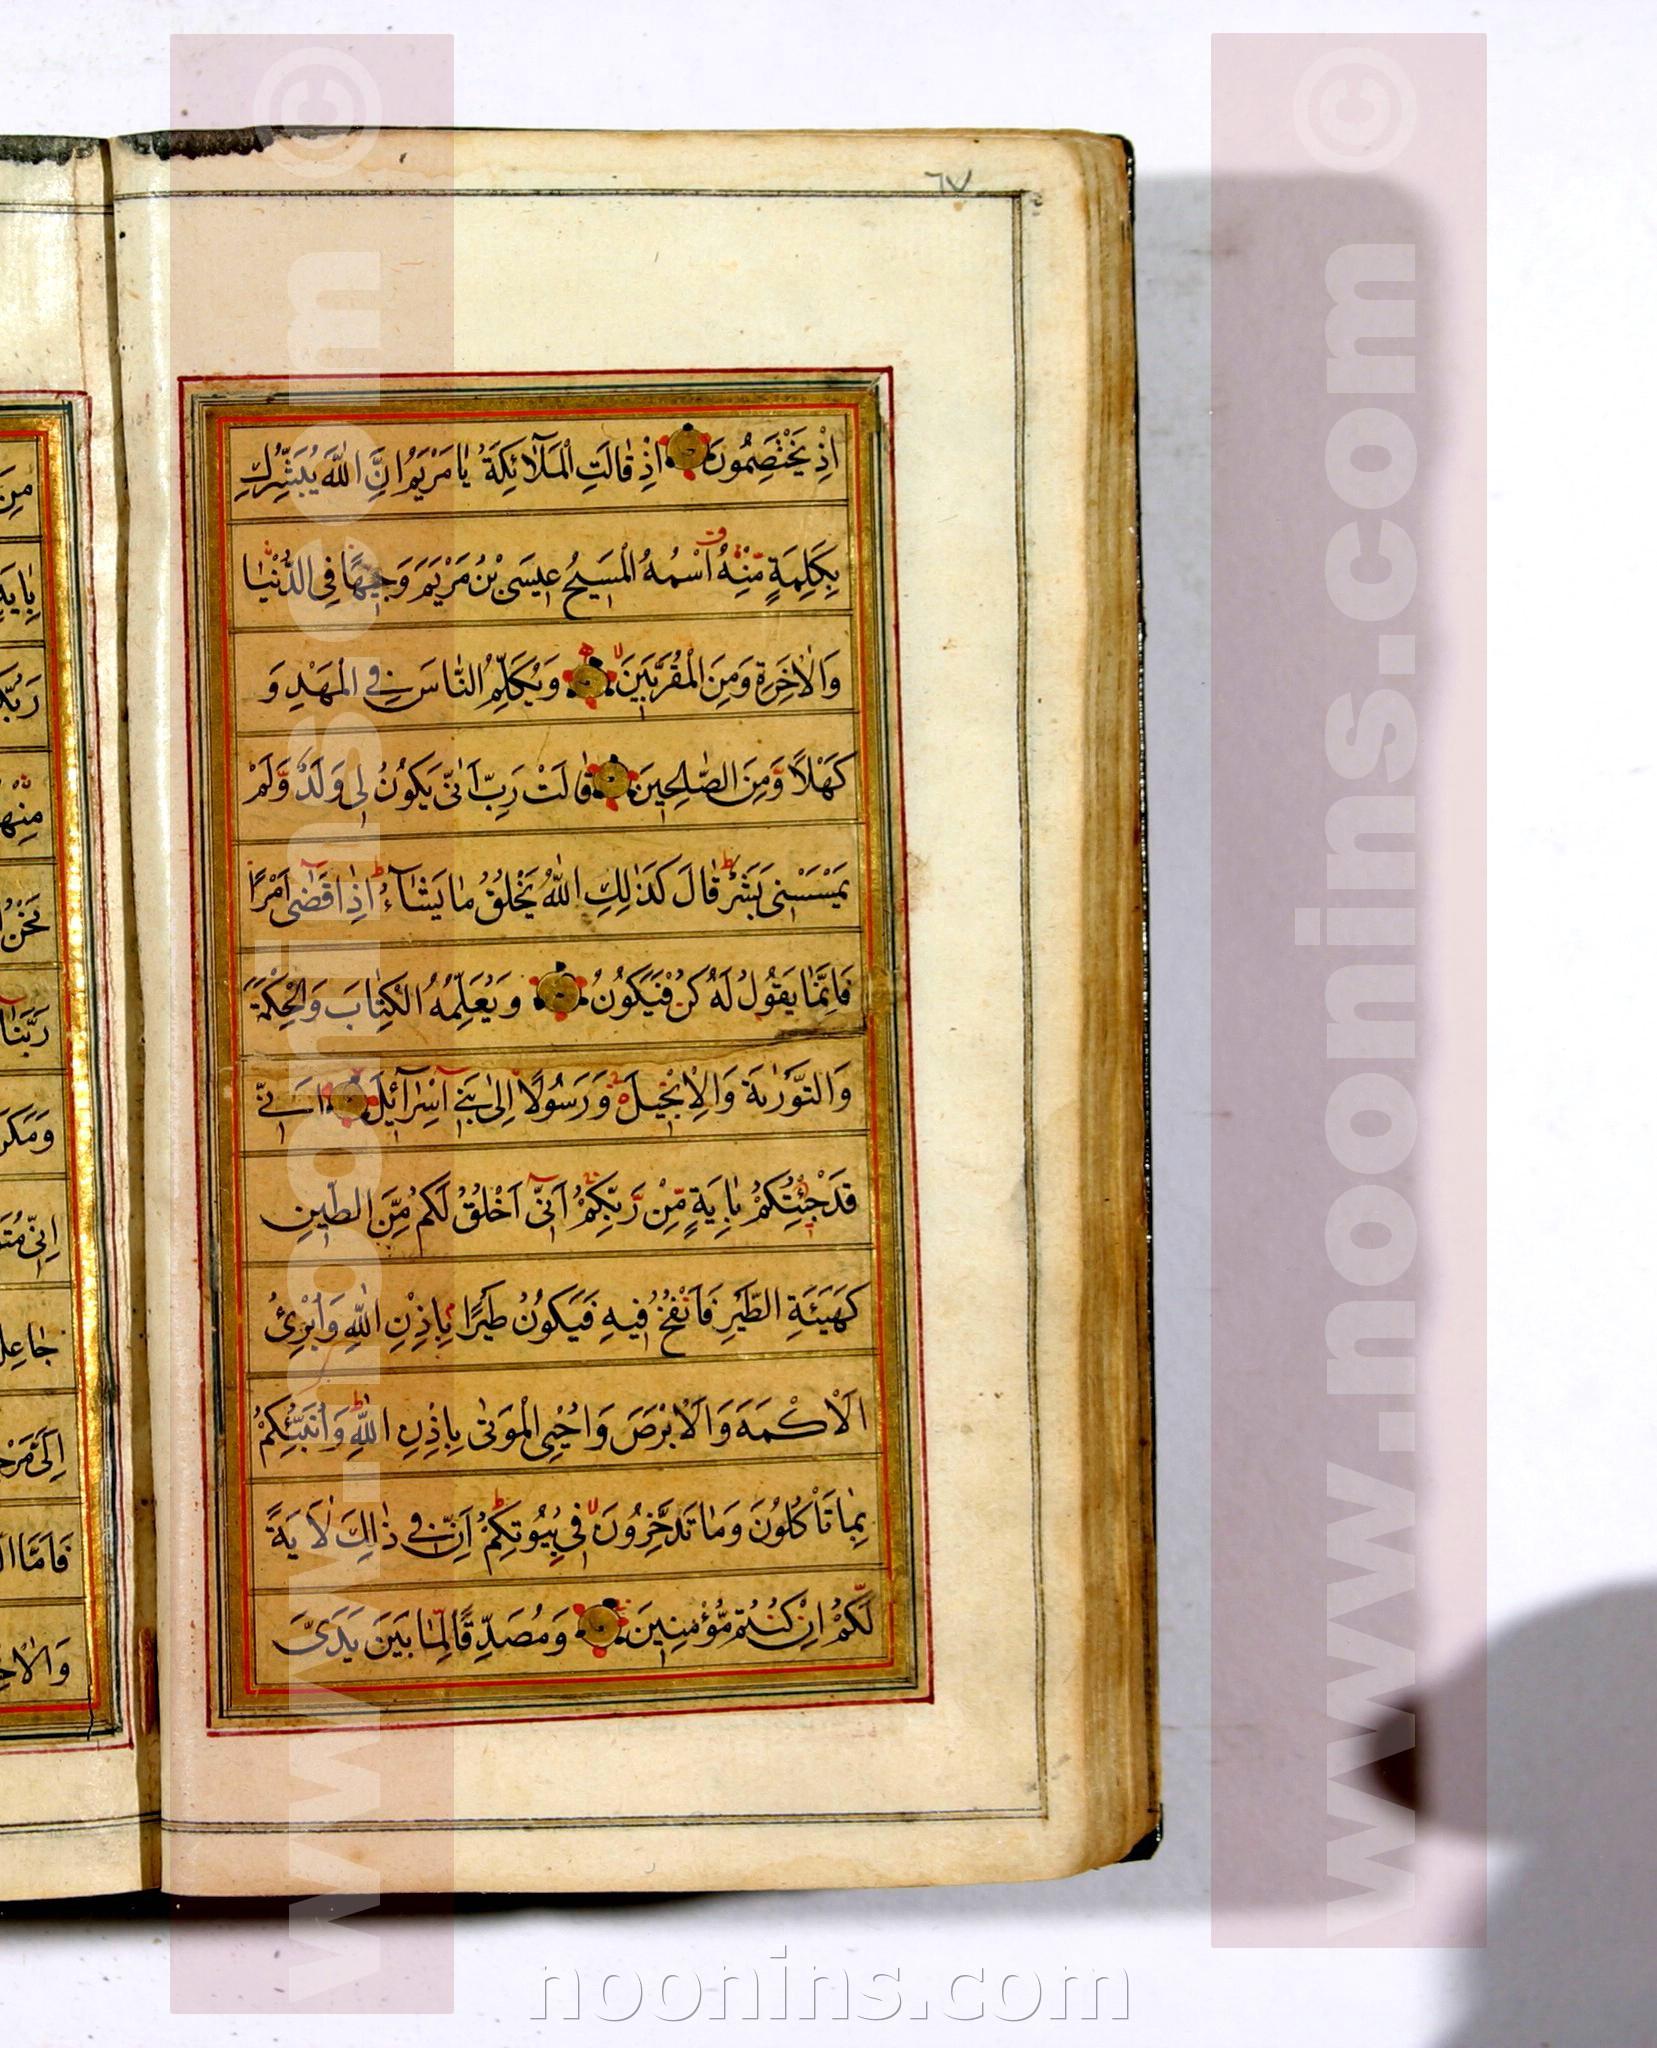 ٦٧
اِذْ يَخْتَصِمُونَ اِذْ قٰالَتِ الْمَلٰٓائِكَةُ يٰا مَرْيَمُ اِنَّ اللّٰهَ يُبَشِّرُكِ
بِكَلِمَةٍ مِّنْهُ اسْمُهُ الْمَسِيحُ عِيسَى بْنُ مَرْيَمَ وَجِيهًا فِي الدُّنْيٰا
وَالْاٰخِرَةِ وَمِنَ الْمُقَرَّبِينَ وَيُكَلِّمُ النّٰاسَ فِي الْمَهْدِ وَ
كَهْلًا وَّمِنَ الصّٰلِحِينَ قٰالَتْ رَبِّ اَنّٰى يَكُونُ لِي وَلَدٌ وَّلَمْ
يَمْسَسْنِي بَشَرٌ قٰالَ كَذٰلِكِ اللّٰهُ يَخْلُقُ مٰا يَشٰآءُ اِذٰا قَضٰٓى اَمْرًا
فَاِنَّمٰا يَقُولُ لَهُ كُنْ فَيَكُونُ وَيُعَلِّمُهُ الْكِتٰابَ وَالْحِكْمَةَ
وَالتَّوْرٰىةَ وَالْاِنْجِيلَ وَرَسُولًا اِلٰى بَنِيٓ اِسْرٰٓائِيلَ اَنِّي
قَدْ جِئْتُكُمْ بِاٰيَةٍ مِّنْ رَّبِّكُمْ اَنِّيٓ اَخْلُقُ لَكُمْ مِّنَ الطِّينِ
كَهَيْئَةِ الطَّيْرِ فَاَنْفُخُ فِيهِ فَيَكُونُ طَيْرًا بِاِذْنِ اللّٰهِ وَاُبْرِئُ
الْاَكْمَهَ وَالْاَبْرَصَ وَاُحْيِي الْمَوْتٰى بِاِذْنِ اللّٰهِ وَاُنَبِّئُكُمْ
بِمٰا تَاْكُلُونَ وَمٰا تَدَّخِرُونَ فِي بُيُوتِكُمْ اِنَّ فِي ذٰلِكَ لَاٰيَةً
لَّكُمْ اِنْ كُنْتُمْ مُّؤْمِنِينَ وَمُصَدِّقًا لِّمٰا بَيْنَ يَدَيَّ
www.noonins.com ©
www.noonins.com ©
noonins.com